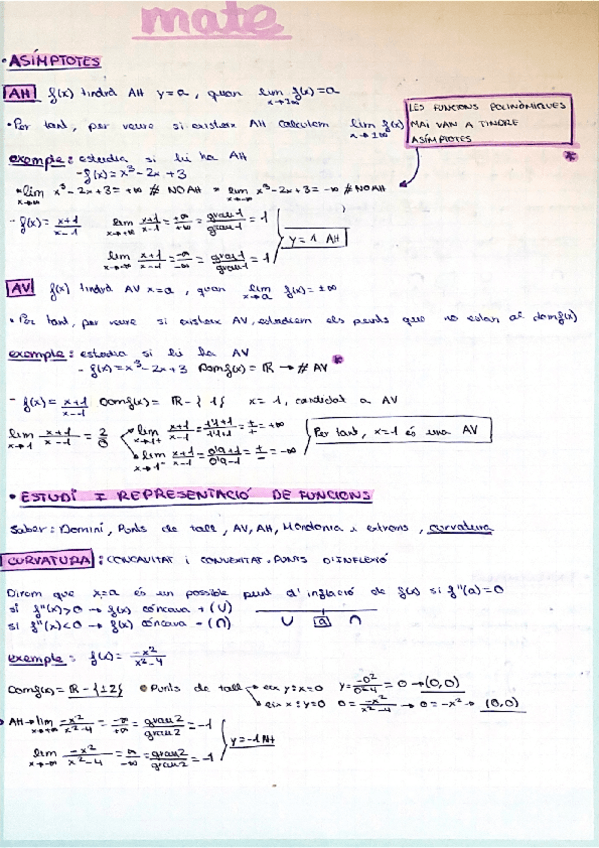 mate
• ASÍMPTOTES
AH f(x) tindrà AH y=a, quan lim f(x)=a
x→±∞
• Per tant, per veure si existeix AH calculem lim f(x)
x→±∞
LES FUNCIONS POLINÒMIQUES
MAI VAN A TINDRE
ASÍMPTOTES
*
exemple: estudia si hi ha AH
- f(x) = x³-2x+3
• lim x³-2x+3 = +∞ ∄ NO AH • lim x³-2x+3 = -∞ ∄ NO AH
x→+∞ x→-∞
- f(x) = x+1/x-1 lim x→+∞ x+1/x-1 = +∞/+∞ = grau 1/grau 1 = 1
y = 1 AH
lim x→-∞ x+1/x-1 = -∞/-∞ = grau 1/grau 1 = 1
AV f(x) tindrà AV x=a, quan lim f(x) = ±∞
x→a
• Per tant, per veure si existeix AV, estudiem els punts que no estan al domf(x)
exemple: estudia si hi ha AV
- f(x) = x³-2x+3 Domf(x) = ℝ → ∄ AV *
- f(x) = x+1/x-1 Domf(x) = ℝ - {1} x = 1, candidat a AV
lim x→1 x+1/x-1 = 2/0
lim x→1+ x+1/x-1 = 1'1+1/1'1-1 = +/+ = +∞
Per tant, x=1 és una AV
• lim x→1- x+1/x-1 = 0'9+1/0'9-1 = +/- = -∞
• ESTUDI I REPRESENTACIÓ DE FUNCIONS
Saber: Domini, Punts de tall, AV, AH, Monotonia i extrems, curvatura
CURVATURA: CONCAVITAT i CONVEXITAT. PUNTS D'INFLEXIÓ
Direm que x=a és un possible punt d'inflexió de f(x) si f''(a)=0
si f''(x)>0 → f(x) còncava + (∪)
si f''(x)<0 → f(x) còncava - (∩) ∪ a ∩
exemple: f(x) = -x²/x²-4
Domf(x) = ℝ - {±2} • Punts de tall eix y: x=0 y = -0²/0²-4 = 0 → (0,0)
eix x: y=0 0 = -x²/x²-4 → 0 = -x² → (0,0)
AH → lim x→+∞ -x²/x²-4 = -∞/+∞ = grau 2/grau 2 = -1
y = -1 AH
lim x→-∞ -x²/x²-4 = = grau 2/grau 2 = -1